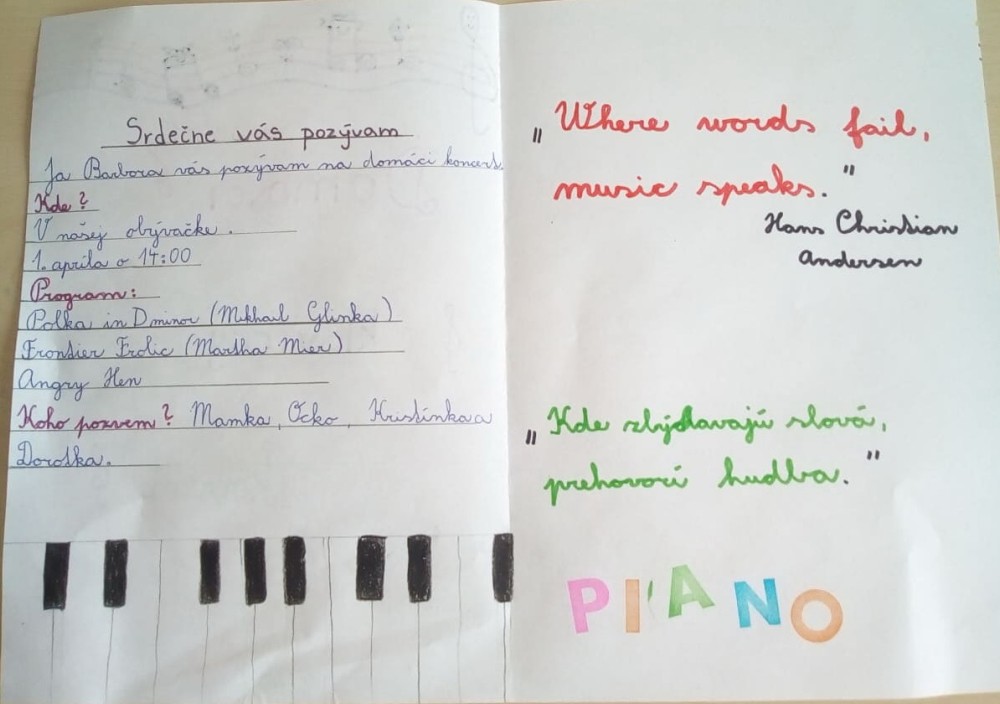 Srdečne vás pozývam
Ja Barbora vás pozývam na domáci koncert.
Kde?
V našej obývačke.
1. apríla o 14:00
Program:
Polka in D minor (Mikhail Glinka)
Frontier Frolic (Martha Mier)
Angry Hen
Koho pozvem? Mamka, Ocko, Kristínka a
Dorotka.
„Where words fail,
music speaks."
Hans Christian
Andersen
„Kde slová,
prehovorí hudba."
PIANO